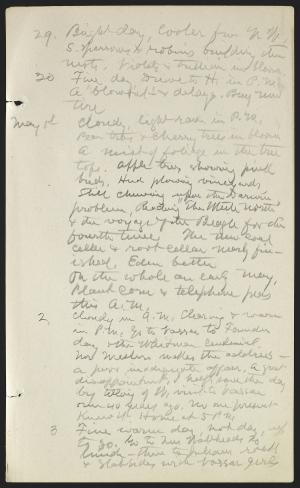 29. Bright day, cooler from N.W.
S. Sparrows & robins building their
nests. Violets & trillium in bloom.
30 Fine day Drive to H. in P.M.
A blowout & delays. Buy new
tire
May 1st Cloudy, light rain in P.M.
Pear trees & cherry trees in bloom
A mist of foliage in the tree
tops. Apple trees showing pink
buds. Hud plowing vineyards.
Still chewing upon the Darwin
problem, reading "The White North"
& the voyage of the Beagle for the
fourth time. The new coal
cellar & root cellar nearly fin-
ished. Eden better
On the whole an early May,
Black come & telephone
this A.M.
2. Cloudy in A.M. Clearing & warm
in P.M. Go to Vassar to Founders
day & the Whitman Centennial.
makes the address —
a poor inadequate affair. A great
disappointment. I help save the day
by telling of W. visit to Vassar
over 40 years ago. No one present
knew it. Home at 5 P.M.
3 Fine warm day. Hot day, up
to 80. Go to
lunch — then to
& Slabsides with Vassar girls